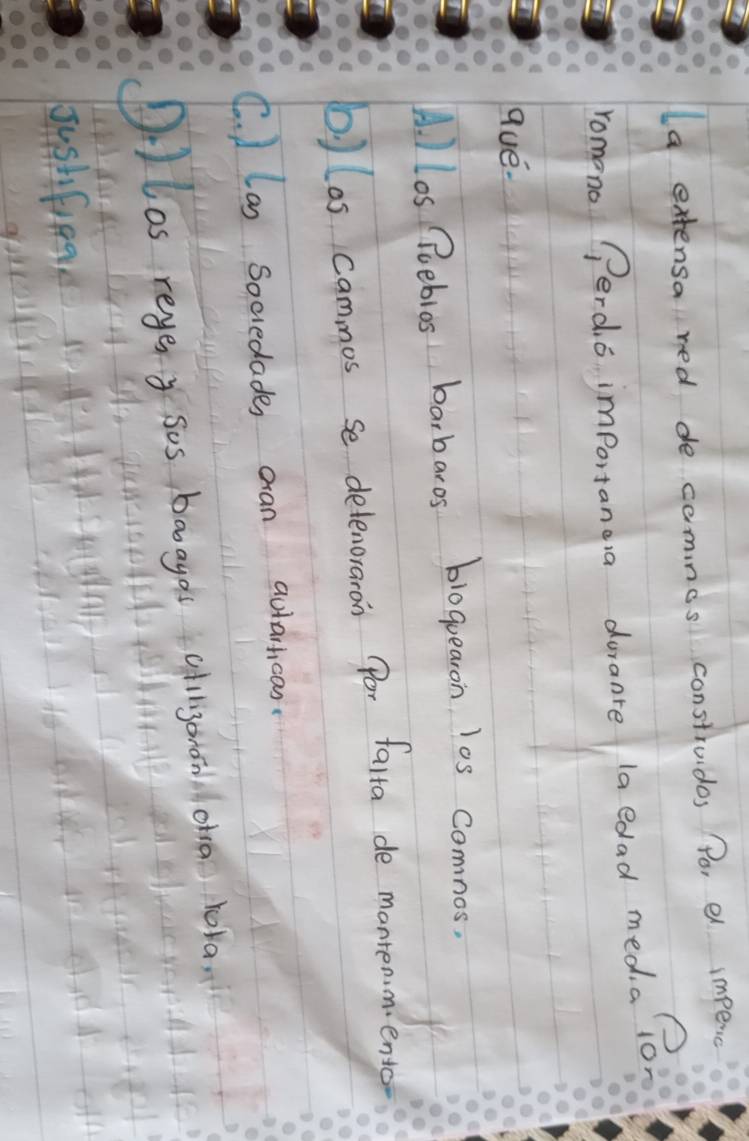 La extensa red de caminos construidos Por el imperio
romano Perdió importancia durante la edad media Por
qué.
A.) Los Pueblos barbaros bloquearón los camnos.
b.) Los cammos se deterioraron Por falta de mantenimiento
C.) Las Sociedades eran autarticas.
D.) Los reyes y Sus basayos utilizarón otra ruta.
Justifica